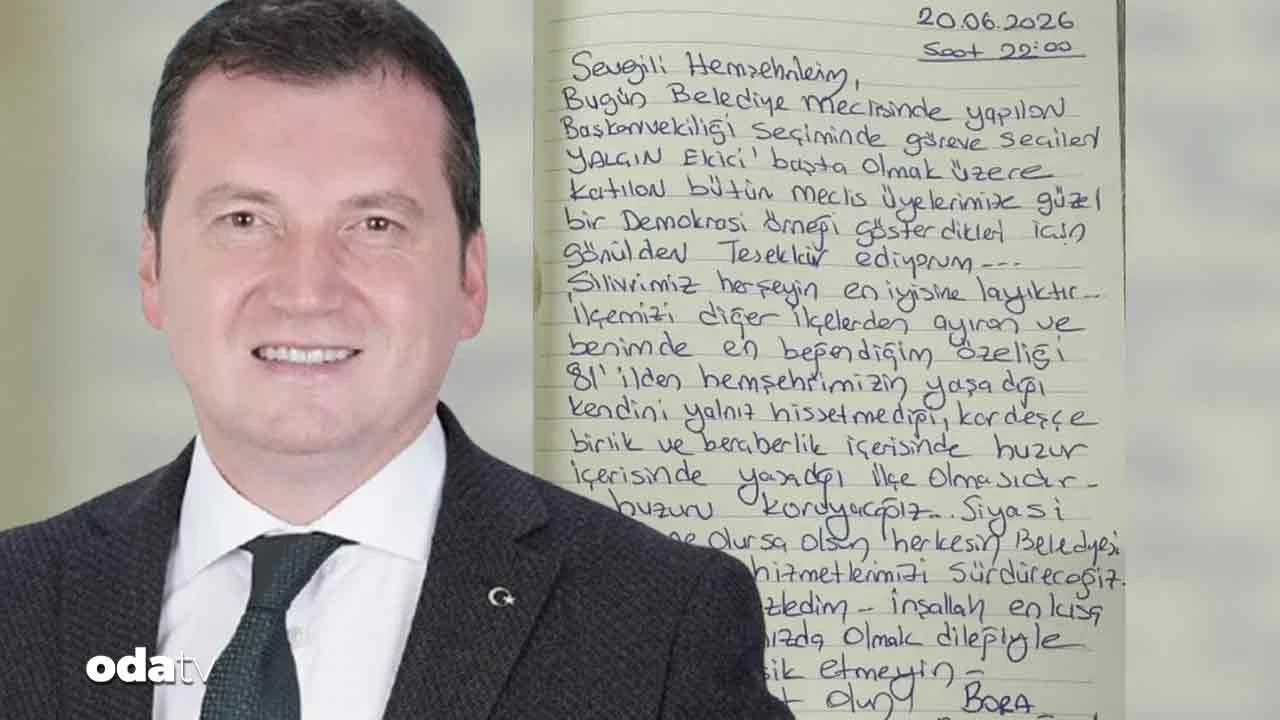 20.06.2026
Saat 22:00
Sevgili Hemşehrilerim,
Bugün Belediye Meclisinde yapılan
Başkanvekiliği seçiminde göreve seçilen
YALÇIN Ekici' başta olmak üzere
katılan bütün meclis üyelerimize güzel
bir Demokrasi örneği gösterdikleri için
gönülden Teşekkür ediyorum---
Silivrimiz herşeyin en iyisine layıktır--
İlçemizi diğer ilçelerden ayıran ve
benimde en beğendiğim özeliği
81' ilden hemşehrimizin yaşadığı
kendini yalnız hissetmediği, kardeşçe
birlik ve beraberlik içerisinde huzur
içerisinde yaşadığı İlçe Olmasıdır-
huzuru koruyacağız... Siyasi
olursa olsun herkesin Belediyesi
hizmetlerimizi sürdüreceğiz.
inşallah en kısa
olmak dileğiyle
etmeyin-
olun, BORA
odatv